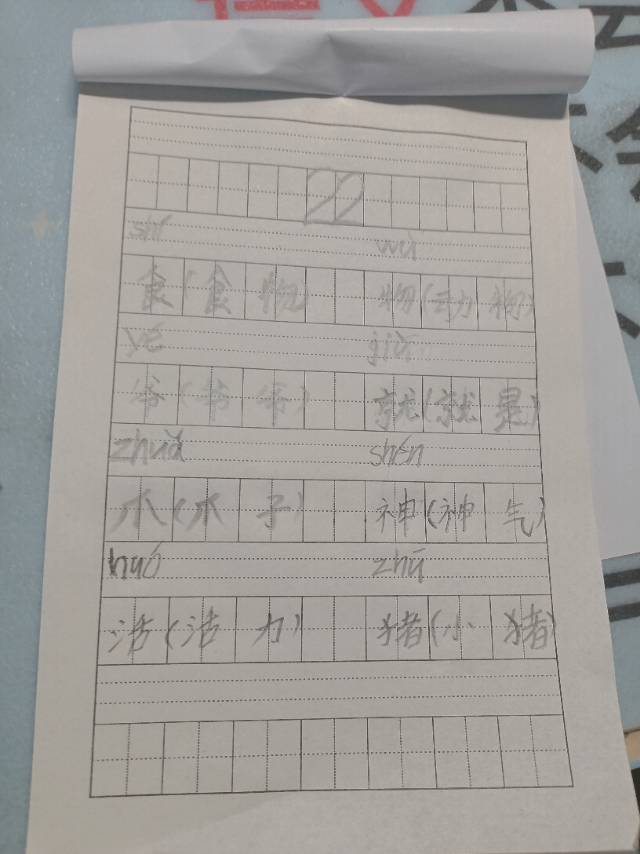 22
shí wù
食(食物) 物(动物)
yé jiù
爷(爷爷) 就(就是)
zhuǎ shén
爪(爪子) 神(神气)
huó zhū
活(活力) 猪(小猪)